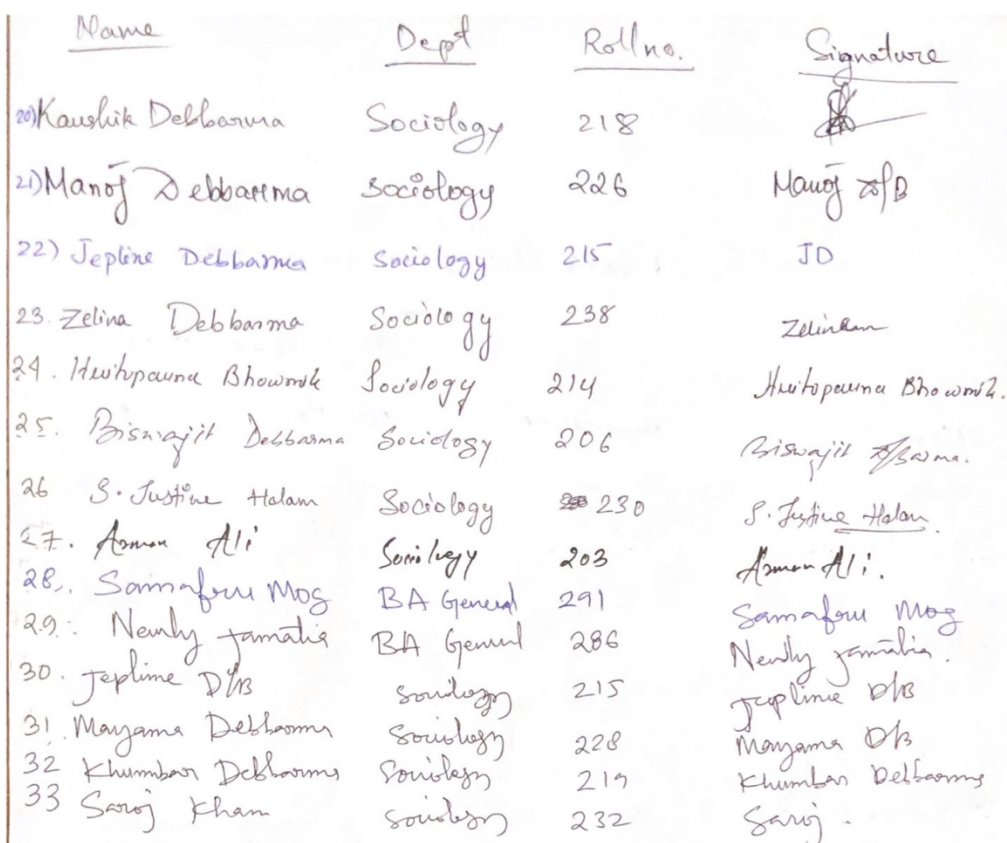 Name Dept Roll no. Signature
20) Kaushik Debbarma Sociology 218
21) Manoj Debbarma Sociology 226 Manoj D/B
22) Jepline Debbarma Sociology 215 JD
23. Zelina Debbarma Sociology 238
24. Bhowmik Sociology 214 Bhowmik.
25. Biswajit Debbarma Sociology 206 Biswajit D/Barma.
26 S. Justine Halam Sociology 230 S. Justine Halam.
27. Arman Ali Sociology 203 Arman Ali.
28. Samafru Mog BA General 291 Samafru Mog
29. Newly Jamatia BA General 286 Newly Jamatia.
30. Jeplime D/B Sociology 215 D/B
31. Mayama Debbarma Sociology 228 Mayama D/B
32 Khumbar Debbarma Sociology 219 Khumbar Debbarma
33 Saroj Kham Sociology 232 Saroj.